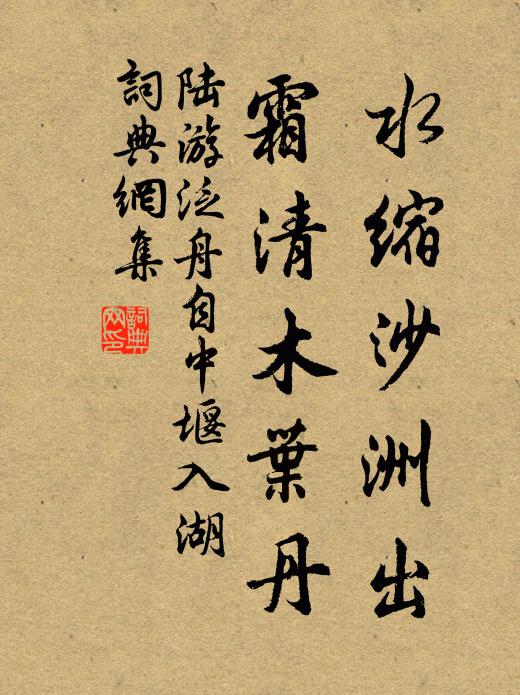 水缩沙洲出
霜清木葉丹
陆游泛舟自中堰入湖
詞典網集
詞典
网印